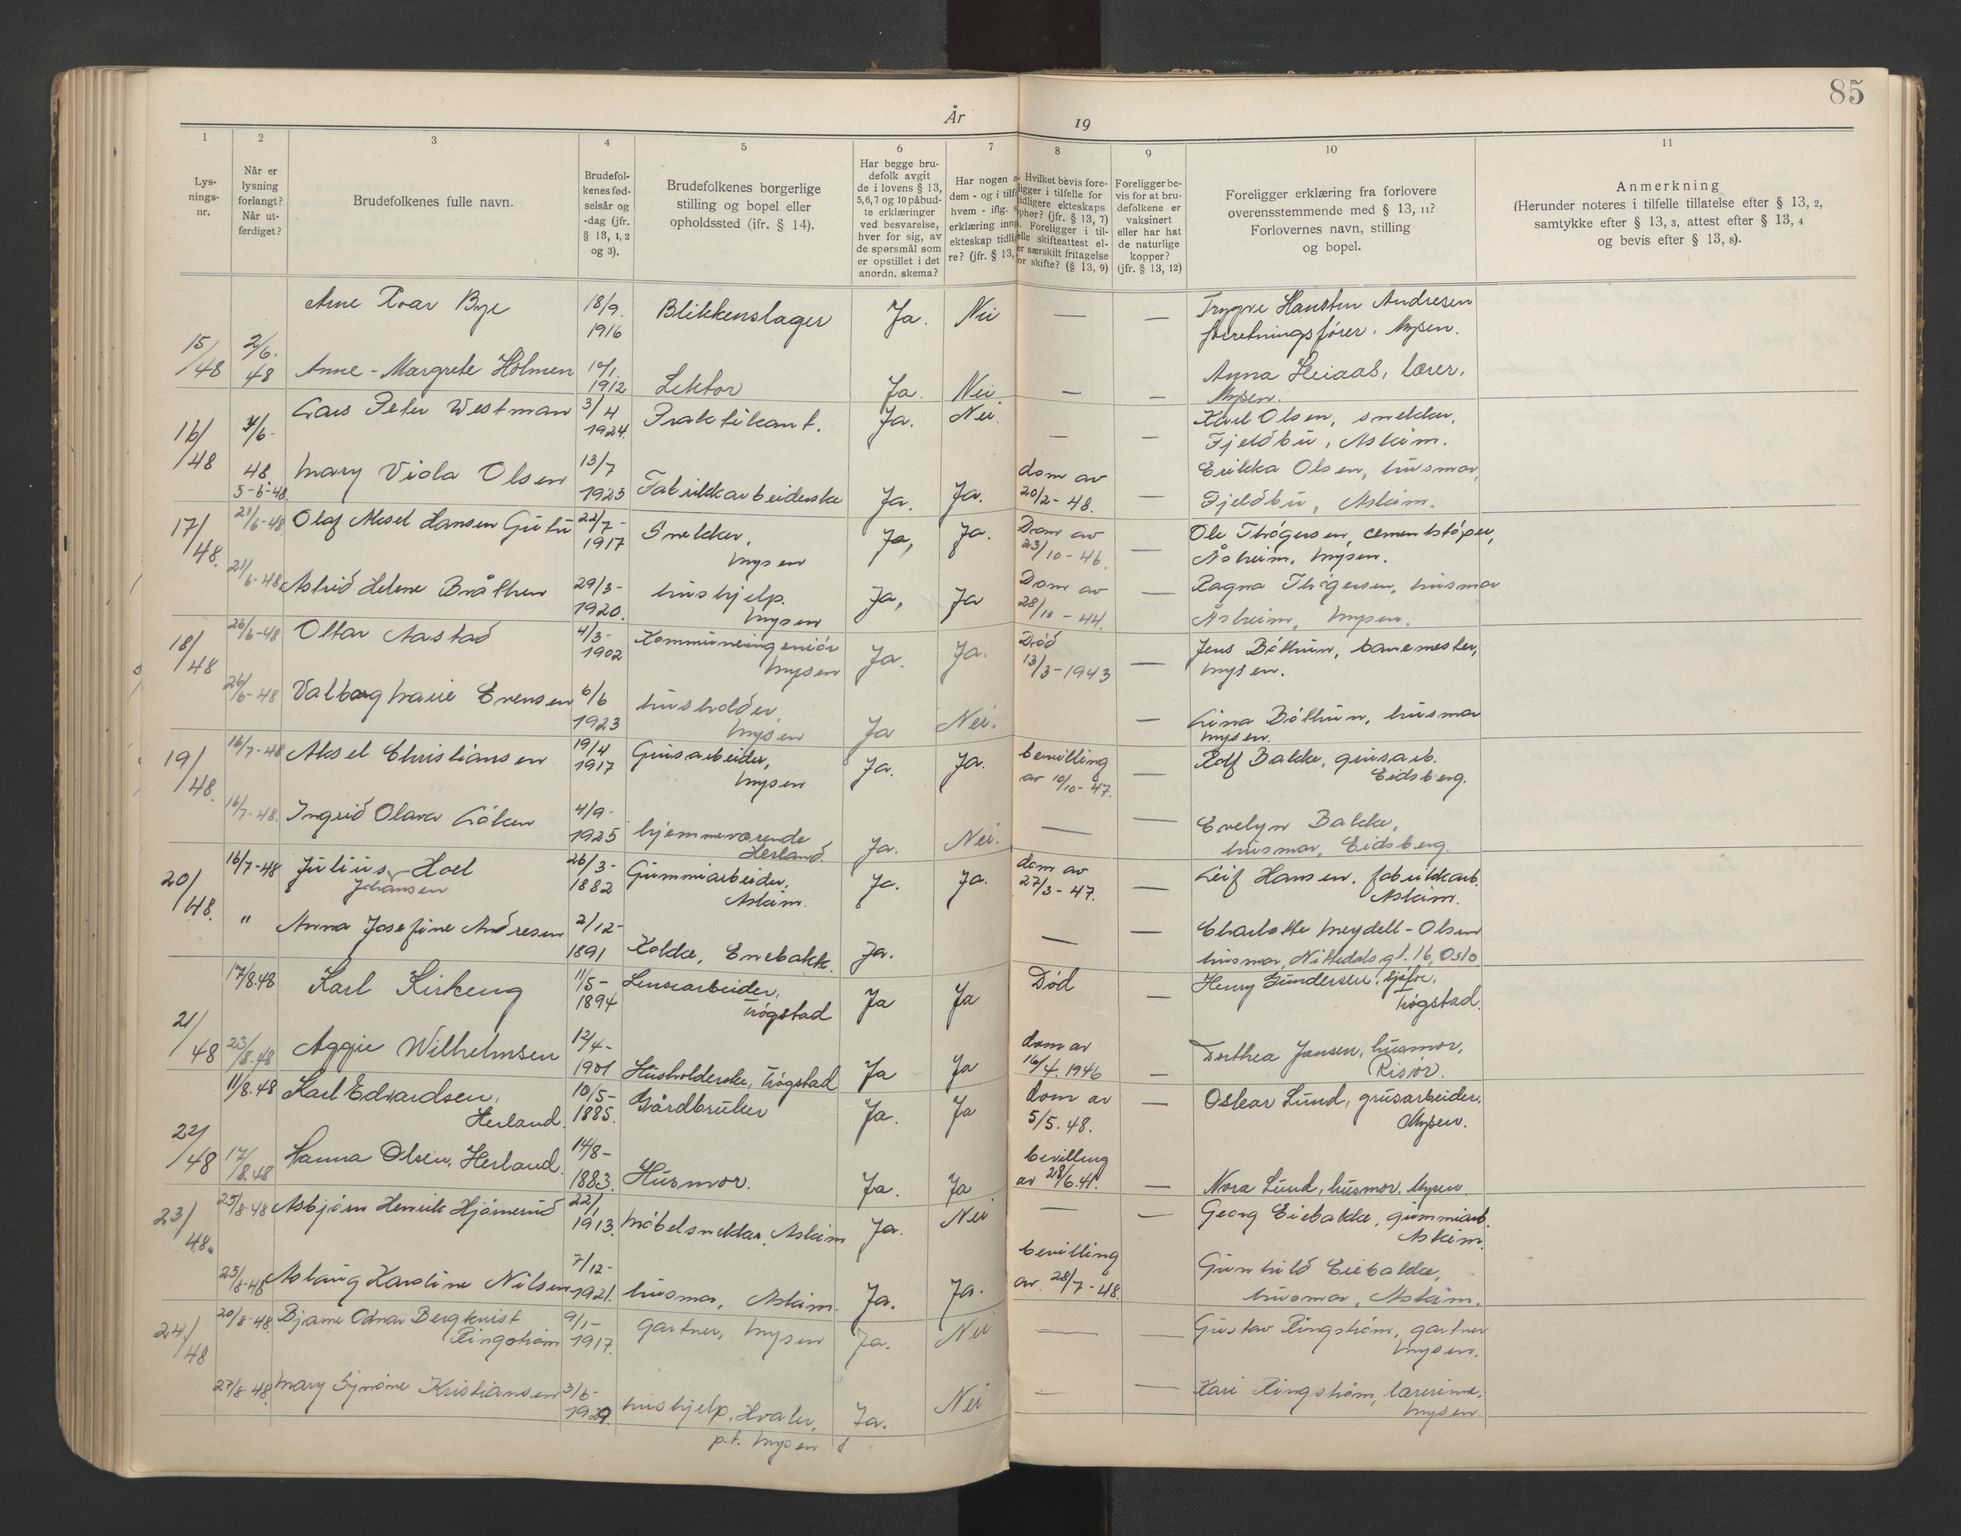 85
År 19
1 2 3 4 5 6 7 8 9 10 11
Lys-
nings-
nr.
Når er
lysning
forlangt?
Når ut-
ferdiget?
Brudefolkenes fulle navn.
Brudefol-
kenes fød-
selsår og
-dag (jfr.
§ 13, 1, 2
og 3).
Brudefolkenes borgerlige
stilling og bopel eller
opholdssted (ifr. § 14).
Har begge bru-
defolk avgit
de i lovens § 13,
5,6,7 og 10 påbud-
te erklæringer
ved besvarelse,
hver for sig, av
de spørsmål som
er opstillet i det
anordn. skema?
Har nogen a
dem - og i tilfe
hvem - iflg.
erklæring inng
ekteskap tidlig
re? (jfr. § 13,
Hvilket bevis fore-
ligger i tilfelle for
tidligere ekteskaps
ophør? (jfr. § 13, 7)
Foreligger i til-
elle skifteattest el-
er særskilt fritagelse
for skifte? (§ 13, 9)
Foreligger be-
vis for at bru-
defolkene er
vaksinert
eller har hat
de naturlige
kopper?
(jfr. § 13, 12)
Foreligger erklæring fra forlovere
overensstemmende med § 13, 11?
Forlovernes navn, stilling
og bopel.
Anmerkning
(Herunder noteres i tilfelle tillatelse efter § 13, 2,
samtykke efter § 13, 3, attest efter § 13, 4
og bevis efter § 13, 8).
15/48 2/6. 48 Arne Roar Bye 18/9. 1916 Blikkenslager Ja. Nei — — Trygve Hansten Andresen
forretningsfører. Mysen.
Anne-Margrete Holmen 10/1. 1912 Lektor Ja. Nei. — — Anna Heiaas, lærer,
Mysen.
16/48 4/6- 48 Lars Peter Westman 3/4 1924. Praktikant. Ja. Nei. — — Karl Olsen, snekker,
Fjeldbu, Askim.
5-6-48 Mary Viola Olsen 13/7 1923 Fabrikkarbeiderske Ja. Ja. dom av 20/2-48. — Erikka Olsen, husmor,
Fjeldbu, Askim.
17/48. 21/6-48 Olaf Aksel Hansen Gutu 22/7- 1917 Snekker, Mysen Ja, Ja. Dom av 23/10-46. — Ole Thøgersen, cementstøper,
Åsheim, Mysen.
21/6-48 Astrid Helene Bråthen 29/3- 1920. hushjelp. Mysen Ja, Ja Dom av 28/10-44. — Ragna Thøgersen, husmor
Åsheim, Mysen.
18/48 26/6-48 Ottar Aastad 4/3- 1902 Kommuneingeniør Mysen Ja. Ja. Død 13/3-1943 — Jens Bøthun, banemester,
Mysen.
26/6-48 Valborg Marie Evensen 6/6 1923 husholder, Mysen Ja Nei. — Lina Bøthun, husmor
Mysen.
19/48. 16/7-48 Aksel Christiansen 19/4 1917 Grusarbeider, Mysen Ja. Ja. bevilling av 10/10-47. — Rolf Bakke, grusarb.
Eidsberg.
16/7-48. Ingrid Olava Løken 4/9- 1925 hjemmeværende Herland Ja. Nei. — — Evelyn Bakke,
husmor, Eidsberg.
20/48. 16/7-48 Julius Johansen Hoel 26/3- 1882 Gummiarbeider, Askim. Ja. Ja. dom av 27/3-47. — Leif Hansen, fabrikkarb.
Askim.
" Anna Josefine Andresen 2/12- 1891 Kokke, Enebakk. Ja. — — Charlotte Meydell-Olsen
husmor, Nittedalsgt. 16, Oslo
21/48 17/8.48 Karl Kirkeng 11/5- 1894 Lensearbeider, Trøgstad Ja Ja Død — Henry Gundersen, sjåfør,
Trøgstad.
23/8.48 Aggie Wilhelmsen 12/4- 1901 Husholderske, Trøgstad Ja Ja dom av 16/4. 1946 — Dorthea Jansen, husmor,
Risør.
22/48 11/8.48 Karl Edvardsen, Herland. 10/5- 1885. Gårdbruker Ja. Ja dom av 5/5.48. — Oskar Lund, grusarbeider,
Mysen.
17/8.48 Hanna Olsen, Herland. 14/8- 1883. Husmor. Ja. Ja bevilling av 28/6.41. — Nora Lund, husmor, Mysen.
23/48. 25/8-48 Asbjørn Henrik Hjørnerud 22/1 1913. Møbelsnekker, Askim Ja. Nei — — Georg Eiebakke, gummiarb.
Askim.
25/8-48 Aslaug Karoline Nilsen 7/12- 1921. husmor, Askim. Ja. Ja. bevilling av 28/7-48. Gunhild Eiebakke,
husmor, Askim.
24/48 20/8-48 Bjarne Odvar Bergkvist Ringstrøm 9/1- 1917. gartner, Mysen Ja. Nei — — Gustav Ringstrøm, gartner
Mysen.
27/8-48. Mary Synnøve Kristiansen 3/6- 1929. hushjelp, Hvaler, p.t. Mysen Ja. Nei — — Kari Ringstrøm, lærerinne,
Mysen.